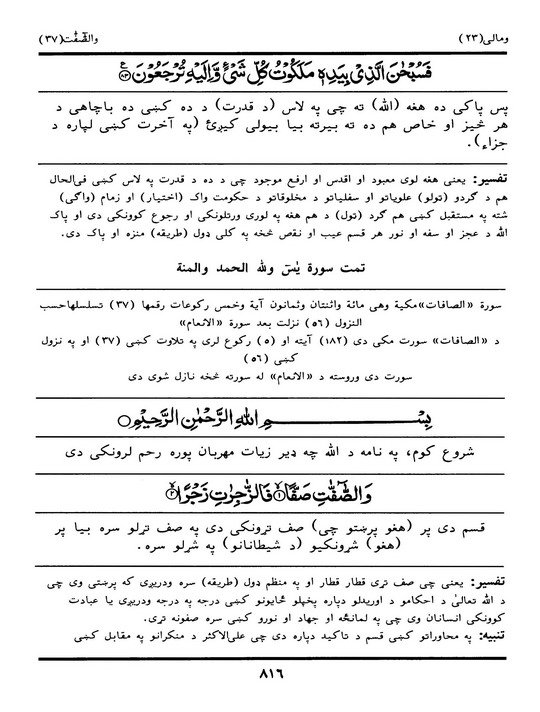 ومالى(٢٣)
والصّٰفّٰت(٣٧)
فَسُبْحٰنَ الَّذِىْ بِيَدِهٖ مَلَكُوْتُ كُلِّ شَىْءٍ وَّاِلَيْهِ تُرْجَعُوْنَ ﴿٨٣﴾
پس پاکی ده هغه (الله) ته چې په لاس (د قدرت) د ده کښې ده باچاهی د
هر څیز او خاص هم ده ته بیرته بیا بیولی کیږئ (په آخرت کښې لپاره د
جزاء).
تفسیر: یعنی هغه لوی معبود او اقدس او ارفع موجود چې د ده د قدرت په لاس کښې فی‌الحال
هم د گردو (تولو) علویاتو او سفلیاتو د مخلوقاتو د حکومت واک (اختیار) او زمام (واگی)
شته په مستقبل کښې هم گرد (تول) د هم هغه په لوری ورتلونکی او رجوع کوونکی دی او پاک
الله د عجز او سفه او نور هر قسم عیب او نقص څخه په کلی ډول (طریقه) منزه او پاک دی.
تمت سورة يٰسۤ ولله الحمد والمنة
سورة «الصافات»مكية وهى مائة واثنتان وثمانون آية وخمس ركوعات رقمها (٣٧) تسلسلهاحسب
النزول (٥٦) نزلت بعد سورة «الانعام»
د «الصافات» سورت مکی دی (١٨٢) آیته او (٥) رکوع لری په تلاوت کښې (٣٧) او په نزول
کښې (٥٦)
سورت دی وروسته د «الانعام» له سورته څخه نازل شوی دی
بِسْــــــــمِ اللهِ الرَّحْمٰنِ الرَّحِيْمِ
شروع کوم، په نامه د الله چه ډیر زیات مهربان پوره رحم لرونکی دی
وَالصّٰٓفّٰتِ صَفًّا ﴿١﴾ فَالزّٰجِرٰتِ زَجْرًا ﴿٢﴾
قسم دی پر (هغو پرښتو چې) صف تړونکی دی په صف تړلو سره بیا پر
(هغو) شړونکیو (د شیطانانو) په شړلو سره.
تفسیر: یعنی چې صف تړی قطار قطار او په منظم ډول (طریقه) سره ودریږی که پرښتی وی چې
د الله تعالیٰ د احکامو د اوریدلو دپاره پخپلو ځایونو کښې درجه په درجه ودریږی یا عبادت
کوونکی انسانان وی چې په لمانځه او جهاد او نورو کښې سره صفونه تړی.
تنبیه: په محاوراتو کښې قسم د تاکید دپاره دی چې علی‌الاکثر د منکرانو په مقابل کښې
٨١٦